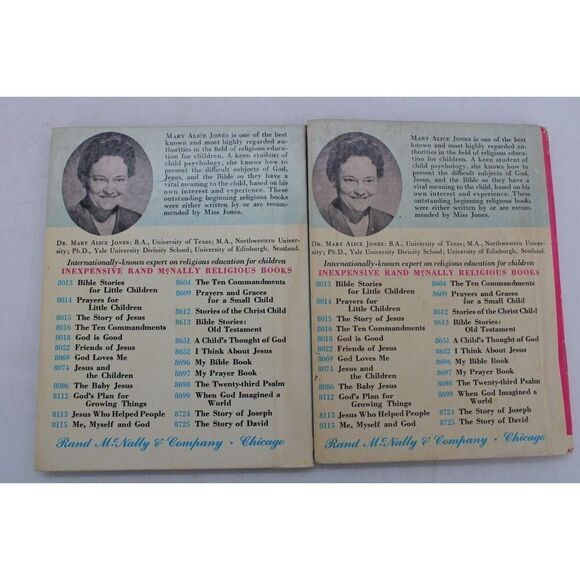 MARY ALICE JONES is one of the best
known and most highly regarded au-
thorities in the field of religious educa-
tion for children. A keen student of
child psychology, she knows how to
present the difficult subjects of God,
Jesus, and the Bible so they have a
vital meaning to the child, based on his
own interest and experience. These
outstanding beginning religious books
were either written by or are recom-
mended by Miss Jones.
DR. MARY ALICE JONES: B.A., University of Texas; M.A., Northwestern Univer-
sity; Ph.D., Yale University Divinity School; University of Edinburgh, Scotland.
Internationally-known expert on religious education for children
INEXPENSIVE RAND McNALLY RELIGIOUS BOOKS
8013 Bible Stories
for Little Children
8014 Prayers for
Little Children
8015 The Story of Jesus
8016 The Ten Commandments
8018 God is Good
8022 Friends of Jesus
8069 God Loves Me
8074 Jesus and
the Children
8086 The Baby Jesus
8112 God's Plan for
Growing Things
8113 Jesus Who Helped People
8115 Me, Myself and God
8604 The Ten Commandments
8609 Prayers and Graces
for a Small Child
8612 Stories of the Christ Child
8613 Bible Stories:
Old Testament
8651 A Child's Thought of God
8652 I Think About Jesus
8696 My Bible Book
8697 My Prayer Book
8698 The Twenty-third Psalm
8699 When God Imagined a
World
8724 The Story of Joseph
8725 The Story of David
Rand McNally & Company · Chicago
MARY ALICE JONES is one of the best
known and most highly regarded au-
thorities in the field of religious educa-
tion for children. A keen student of
child psychology, she knows how to
present the difficult subjects of God,
Jesus, and the Bible so they have a
vital meaning to the child, based on his
own interest and experience. These
outstanding beginning religious books
were either written by or are recom-
mended by Miss Jones.
DR. MARY ALICE JONES: B.A., University of Texas; M.A., Northwestern Univer-
sity; Ph.D., Yale University Divinity School; University of Edinburgh, Scotland.
Internationally-known expert on religious education for children
INEXPENSIVE RAND McNALLY RELIGIOUS BOOKS
8013 Bible Stories
for Little Children
8014 Prayers for
Little Children
8015 The Story of Jesus
8016 The Ten Commandments
8018 God is Good
8022 Friends of Jesus
8069 God Loves Me
8074 Jesus and
the Children
8086 The Baby Jesus
8112 God's Plan for
Growing Things
8113 Jesus Who Helped People
8115 Me, Myself and God
8604 The Ten Commandments
8609 Prayers and Graces
for a Small Child
8612 Stories of the Christ Child
8613 Bible Stories:
Old Testament
8651 A Child's Thought of God
8652 I Think About Jesus
8696 My Bible Book
8697 My Prayer Book
8698 The Twenty-third Psalm
8699 When God Imagined a
World
8724 The Story of Joseph
8725 The Story of David
Rand McNally & Company · Chicago